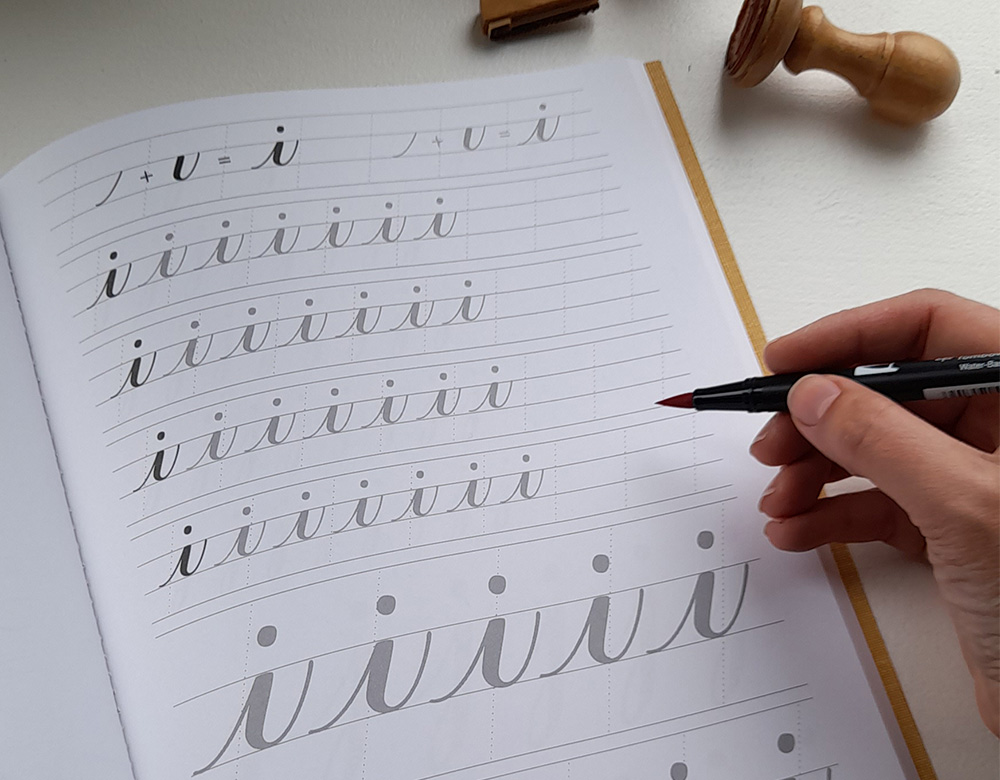 + ı = i + ı = i
i i i i i i i
i i i i i i i
i i i i i i i
i i i i i i i
i i i i i